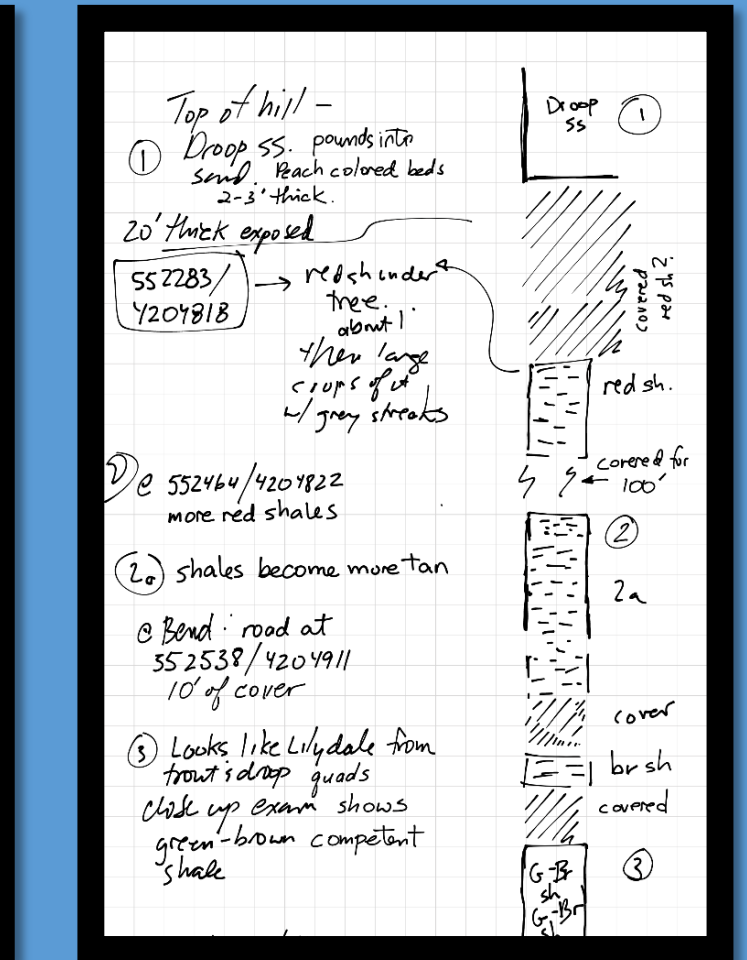 Top of hill -
① Droop ss. pounds into
sand. Peach colored beds
2-3' thick.
20' thick exposed
552283/
4204818
→ red sh under
tree.
about 1'
then large
of it
w/ grey streaks
② @ 552464/4204822
more red shales
2a shales become more tan
@ Bend : road at
552538/4204911
10' of cover
③ Looks like Lilydale from
trout & droop quads
close up exam shows
green-brown competent
shale
Droop
ss
①
covered
red sh?
red sh.
covered for
100'
②
2a
cover
br sh
covered
G-Br
sh
G-Br
sh
③